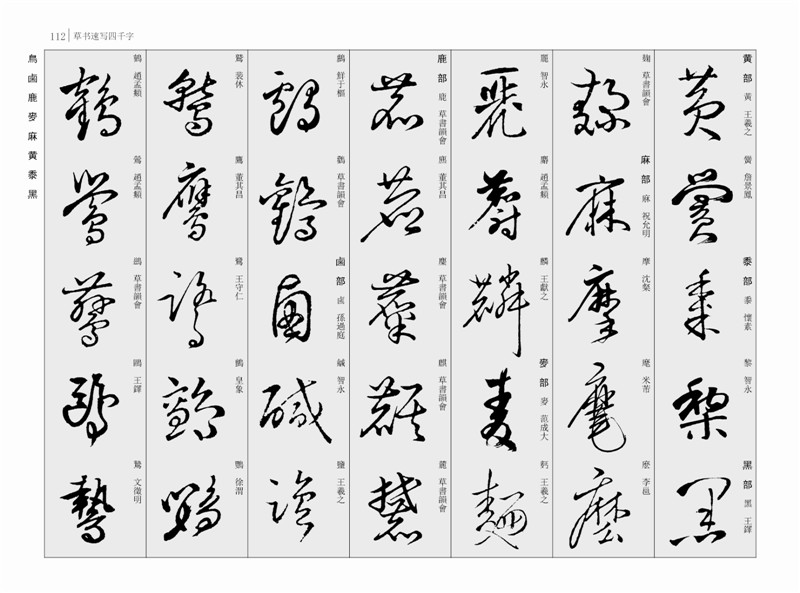 112 草书速写四千字
鳥 鹵 鹿 麥 麻 黄 黍 黑
鶴 趙孟頫
鶯 趙孟頫
草書韻會
鷗 王鐸
鷙 文徵明
鷲 裴休
鷹 董其昌
鷺 王守仁
皇象
鸚 徐渭
鮮于樞
鸛 草書韻會
鹵部 鹵 孫過庭
鹹 智永
鹽 王羲之
鹿部 鹿 草書韻會
董其昌
麇 草書韻會
麒 草書韻會
麓 草書韻會
麗 智永
麝 趙孟頫
麟 王獻之
麥部 麥 范成大
麵 王羲之
草書韻會
麻部 麻 祝允明
摩 沈粲
麾 米芾
麽 李邕
黄部 黄 王羲之
黌 詹景鳳
黍部 黍 懷素
黎 智永
黑部 黑 王鐸